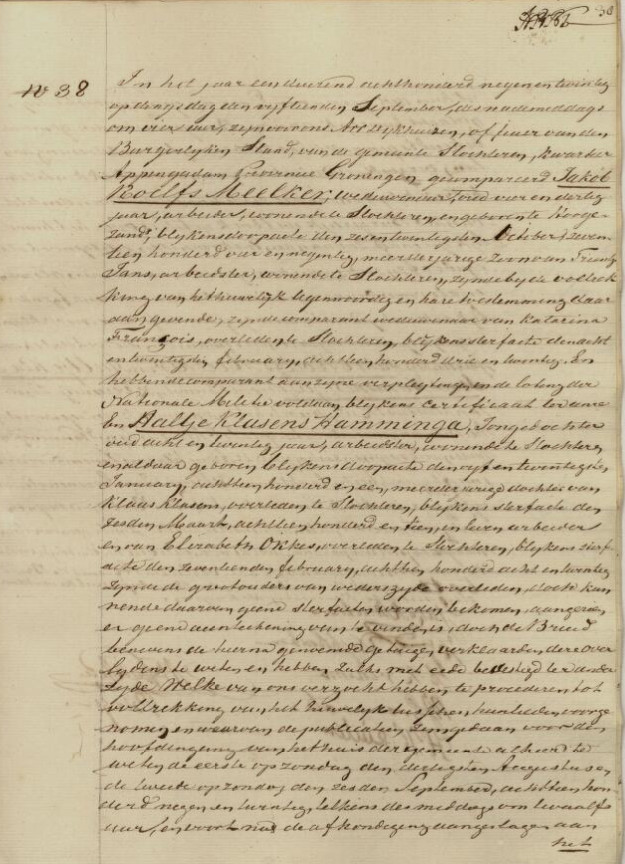 38
N° 38
In het jaar een duizend achthonderd negen en twintig
op dingsdag den vyftienden September, des nademiddags
om vier uur, zyn voor ons Dykhuizen, officier van den
Burgerlyken Stand, van de gemeente Slochteren, kwartier
Appingadam Provincie Groningen gecompareerd Jakob
Roelfs Meelker, weduwenaar, oud vier en dertig
jaar, arbeider, wonende te Slochteren, en geboren te Hooge-
zand, blykens doopacte den zes en twintigden October, zeven-
tien honderd vier en negentig, meerderjarige Zoon van Trientje
Jans, arbeidster, wonende te Slochteren, zynde by de voltrek
king van het huwelyk tegenwoordig en hare toestemming daar
aan gevende, zynde comparant weduwenaar van Katarina
François, overleden te Slochteren, blykens sterfacte den acht
en twintigden february, achttien honderd drie en twintig. En
hebbende comparant aan zyne verpligting, in de loting der
Nationale Militie voldaan, blykens Certificaat
En Aaltje Klasens Hamminga, Jongedochter
oud acht en twintig jaar, arbeidster, wonende te Slochteren
en aldaar geboren blykens doopacte den vyf en twintigsten
January, achttien honderd en een, meerderjarige dochter van
Klaas Klasens, overleden te Slochteren, blykens sterfacte den
zesden Maart, achttien honderd en tien, in leven arbeider
en van Elizabeth Okkes, overleden te Slochteren, blykens sterf
acte den zeventienden february, achttien honderd acht en twintig
zynde de grootouders van wederszyde overleden, doch kun
nende daarvan geene sterfacten worden bekomen, aangezien
er geene aanteekening van te vinden is, doch de Bruid
benevens de hierna genoemde getuigen verklaarden dere over
lydens te weten en hebben zulks met eede bevestigd ter andere
zyde Welke van ons verzocht hebben te procederen tot
voltrekking van het huwelyk tusschen hunlieden voorge
nomen en waarvan de publicatien zyn gedaan voor den
hoofdingang van het huis der gemeente alhier te
weten de eerste op zondag den dertigsten Augustus en
de tweede op zondag den zesden September, achttien hon
derd negen en twintig, telkens des middags om twaalf
uur, en voorts na de afkondiging aangeslagen aan
het